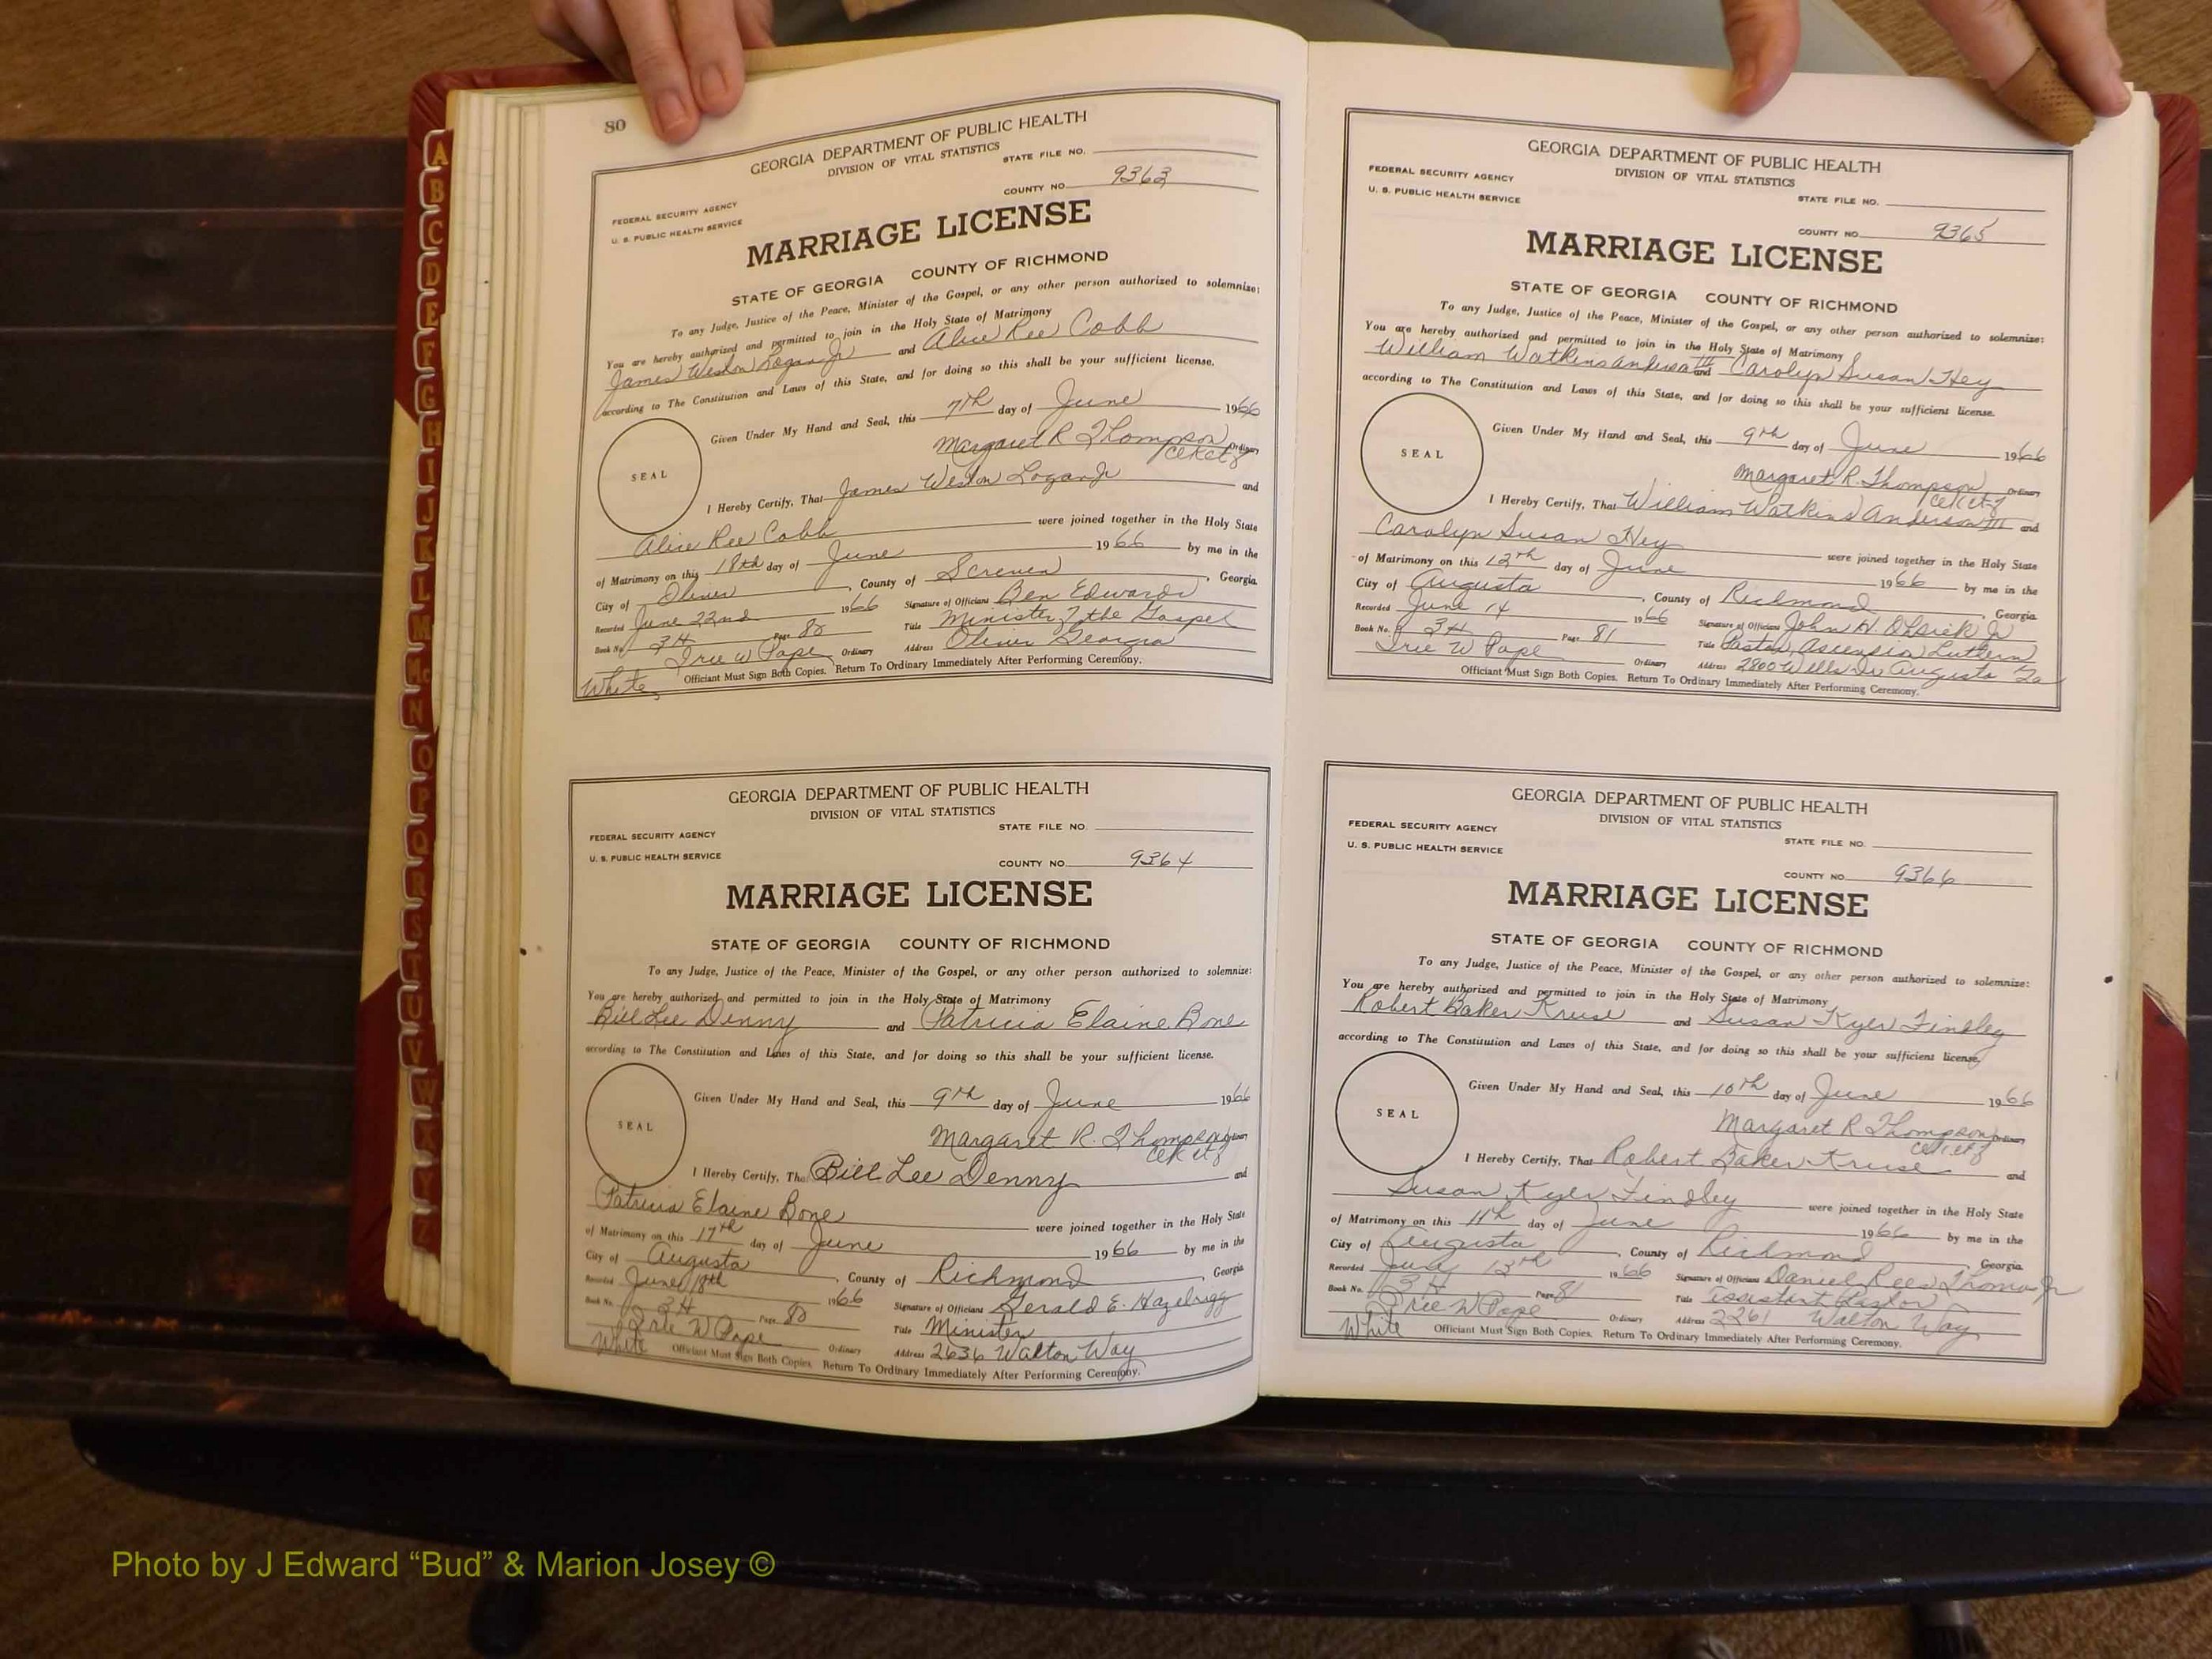 A
B
C
D
E
F
G
H
I
J
K
L
M
Mc
N
O
P
Q
R
S
T
U
V
W
X
Y
Z
80
GEORGIA DEPARTMENT OF PUBLIC HEALTH
DIVISION OF VITAL STATISTICS
STATE FILE NO.
COUNTY NO. 9363
FEDERAL SECURITY AGENCY
U. S. PUBLIC HEALTH SERVICE
MARRIAGE LICENSE
STATE OF GEORGIA COUNTY OF RICHMOND
To any Judge, Justice of the Peace, Minister of the Gospel, or any other person authorized to solemnize:
You are hereby authorized and permitted to join in the Holy State of Matrimony
James Weston Logan Jr and Alice Ree Cobb
according to The Constitution and Laws of this State, and for doing so this shall be your sufficient license.
Given Under My Hand and Seal, this 7th day of June 1966
SEAL
Margaret R Thompson Ordinary
I Hereby Certify, That James Weston Logan Jr and
Alice Ree Cobb were joined together in the Holy State
of Matrimony on this 18th day of June 1966 by me in the
City of Oliver, County of Screven, Georgia.
Recorded June 22nd 1966 Signature of Officiant Ben Edwards
Book No. 3H Page 80 Title Minister of the Gospel
Irie W Pope Ordinary Address Oliver Georgia
White Officiant Must Sign Both Copies. Return To Ordinary Immediately After Performing Ceremony.
GEORGIA DEPARTMENT OF PUBLIC HEALTH
DIVISION OF VITAL STATISTICS
STATE FILE NO.
FEDERAL SECURITY AGENCY
U. S. PUBLIC HEALTH SERVICE
COUNTY NO. 9364
MARRIAGE LICENSE
STATE OF GEORGIA COUNTY OF RICHMOND
To any Judge, Justice of the Peace, Minister of the Gospel, or any other person authorized to solemnize:
You are hereby authorized and permitted to join in the Holy State of Matrimony
Bill Lee Denny and Patricia Elaine Bone
according to The Constitution and Laws of this State, and for doing so this shall be your sufficient license.
Given Under My Hand and Seal, this 9th day of June 1966
SEAL
Margaret R. Thompson Ordinary
I Hereby Certify, That Bill Lee Denny and
Patricia Elaine Bone were joined together in the Holy State
of Matrimony on this 17th day of June 1966 by me in the
City of Augusta, County of Richmond, Georgia
Recorded June 18th 1966 Signature of Officiant Gerald E. Hazelrigg
Book No. 3H Page 80 Title Minister
Irie W Pope Ordinary Address 2636 Walton Way
White Officiant Must Sign Both Copies. Return To Ordinary Immediately After Performing Ceremony.
GEORGIA DEPARTMENT OF PUBLIC HEALTH
DIVISION OF VITAL STATISTICS
FEDERAL SECURITY AGENCY
U. S. PUBLIC HEALTH SERVICE
STATE FILE NO.
COUNTY NO. 9365
MARRIAGE LICENSE
STATE OF GEORGIA COUNTY OF RICHMOND
To any Judge, Justice of the Peace, Minister of the Gospel, or any other person authorized to solemnize:
You are hereby authorized and permitted to join in the Holy State of Matrimony
William Watkins Anderson III and Carolyn Susan Hey
according to The Constitution and Laws of this State, and for doing so this shall be your sufficient license.
Given Under My Hand and Seal, this 9th day of June 1966
SEAL
Margaret R. Thompson Ordinary
I Hereby Certify, That William Watkins Anderson III and
Carolyn Susan Hey were joined together in the Holy State
of Matrimony on this 12th day of June 1966 by me in the
City of Augusta, County of Richmond, Georgia.
Recorded June 14 1966 Signature of Officiant John H. Jr
Book No. 3H Page 81 Title Pastor, Ascension Luthern
Irie W Pope Ordinary Address 2860 Wells Dr Augusta Ga
Officiant Must Sign Both Copies. Return To Ordinary Immediately After Performing Ceremony.
GEORGIA DEPARTMENT OF PUBLIC HEALTH
DIVISION OF VITAL STATISTICS
FEDERAL SECURITY AGENCY
U. S. PUBLIC HEALTH SERVICE
STATE FILE NO.
COUNTY NO. 9366
MARRIAGE LICENSE
STATE OF GEORGIA COUNTY OF RICHMOND
To any Judge, Justice of the Peace, Minister of the Gospel, or any other person authorized to solemnize:
You are hereby authorized and permitted to join in the Holy State of Matrimony
Robert Baker Kruse and Susan Kyer Findley
according to The Constitution and Laws of this State, and for doing so this shall be your sufficient license.
Given Under My Hand and Seal, this 10th day of June 1966
SEAL
Margaret R Thompson Ordinary
I Hereby Certify, That Robert Baker Kruse and
Susan Kyer Findley were joined together in the Holy State
of Matrimony on this 11th day of June 1966 by me in the
City of Augusta, County of Richmond, Georgia.
Recorded June 13th 1966 Signature of Officiant Daniel Rees Thomas Jr
Book No. 3H Page 81 Title assistant Pastor
Irie W Pope Ordinary Address 2261 Walton Way
White Officiant Must Sign Both Copies. Return To Ordinary Immediately After Performing Ceremony.
Photo by J Edward “Bud” & Marion Josey ©